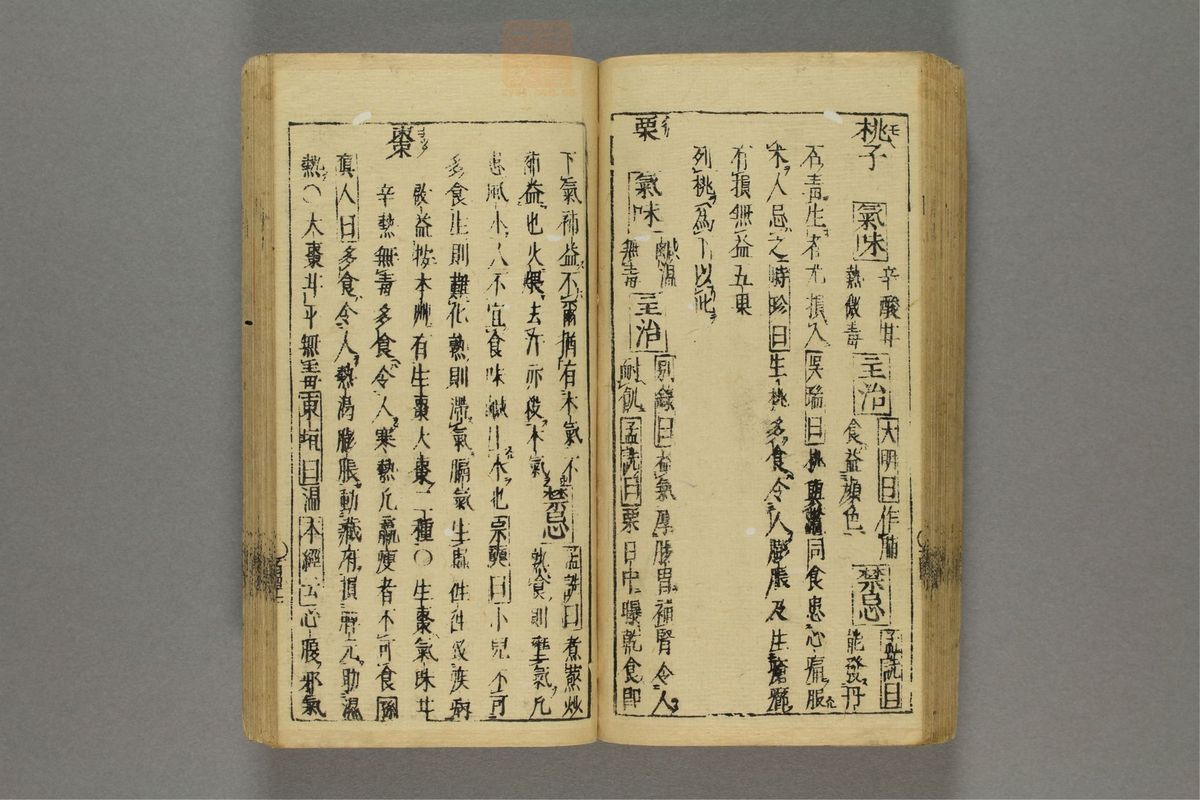 桃子 モヽ 氣味 辛酸甘熱微毒 主治 大明曰作脯食益顔色 禁忌 孟詵曰能發丹
石毒生者尤損人 吳瑞曰 桃與鱉同食患心痛服
朮人忌之 時珍曰 生桃多食令人膨脹及生癰癤
有損無益五果
列桃爲下以此
栗 氣味 鹹温無毒 主治 別錄曰益氣厚腸胃補腎令人耐飢 孟詵曰 栗日中曝乾食即
下氣補益不爾猶有木氣不
補益也火煨去汗亦後木氣 禁忌 孟詵曰煮蒸炒熟食則壅氣凡
患風水人不宜食味鹹生水也 宗奭曰 小兒不可
多食生則難化熟則滯氣膈氣生蟲往往致疾病
棗
啟益按本艸有生棗大棗二種〇生棗氣味甘
辛熱無毒多食令人寒熱凡羸瘦者不可食 孫
眞人曰 多食令人熱渴膨脹動藏府損脾元助濕
熱〇大棗甘平無毒 東垣曰 温 本經云 心腹邪氣